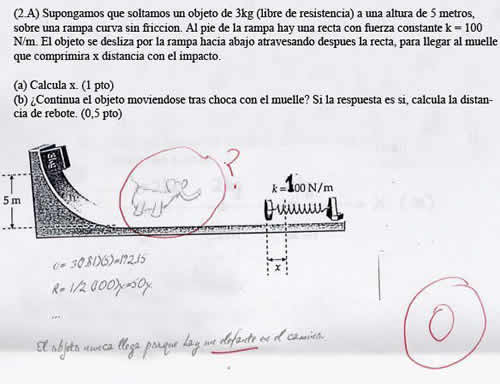 (2.A) Supongamos que soltamos un objeto de 3kg (libre de resistencia) a una altura de 5 metros,
sobre una rampa curva sin friccion. Al pie de la rampa hay una recta con fuerza constante k = 100
N/m. El objeto se desliza por la rampa hacia abajo atravesando despues la recta, para llegar al muelle
que comprimira x distancia con el impacto.
(a) Calcula x. (1 pto)
(b) ¿Continua el objeto moviendose tras choca con el muelle? Si la respuesta es si, calcula la distan-
cia de rebote. (0,5 pto)
?
k = 100 N/m
5 m
x
R= 1/2 (100)x=50x
...
El objeto nunca llega porque hay un elefante en el camino.
0